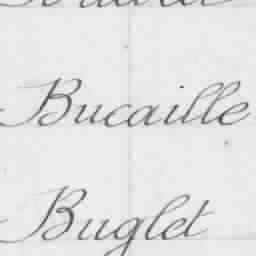 Bucaille
Buglet